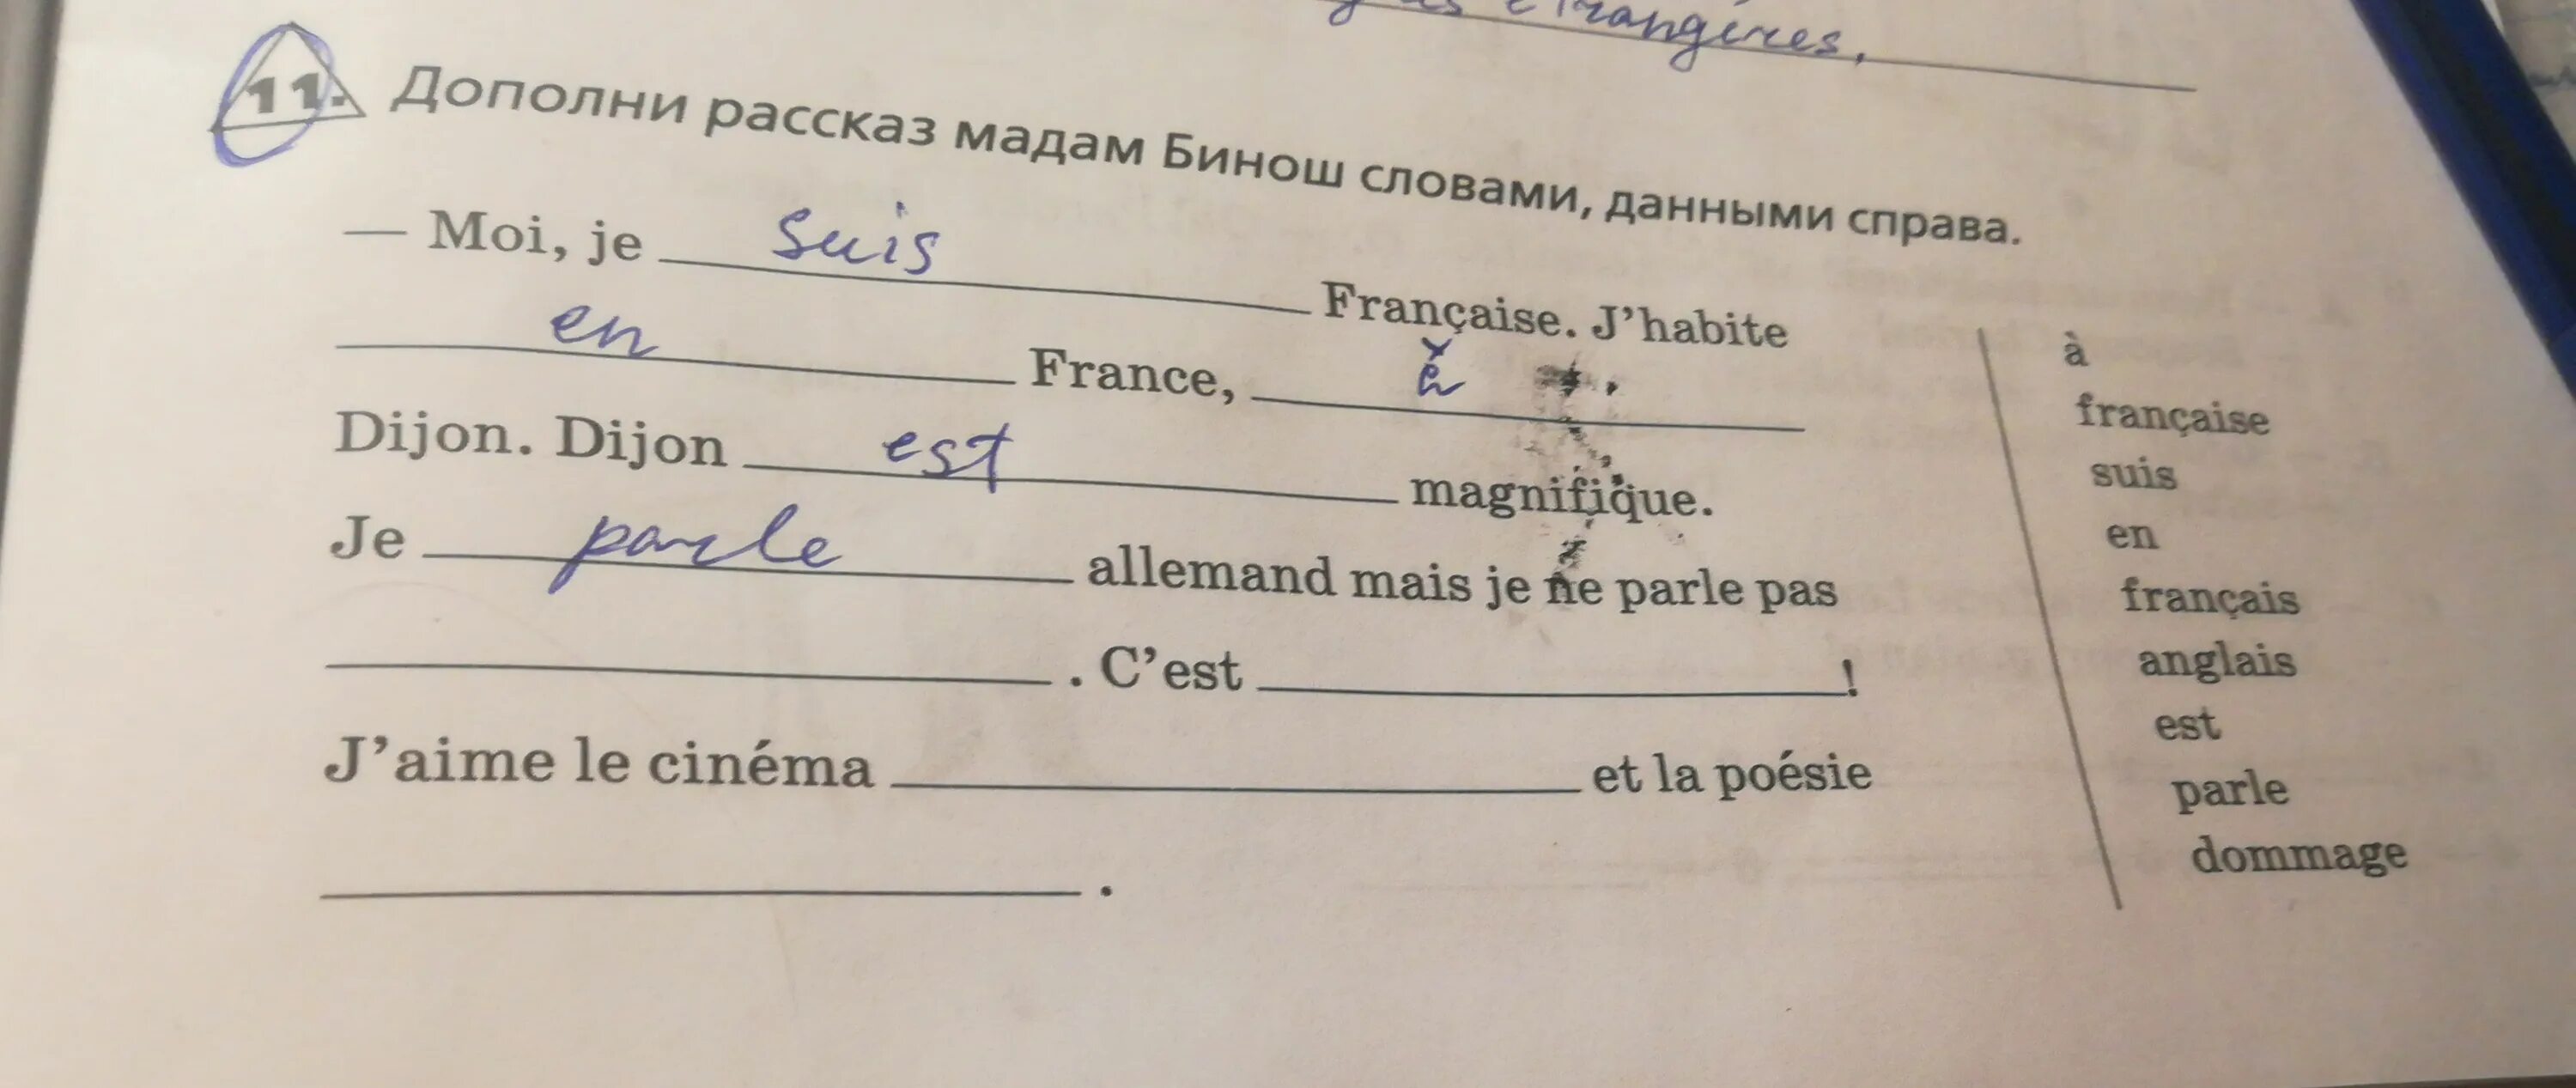 étrangères,
11. Дополни рассказ мадам Бинош словами, данными справа.
— Moi, je suis Française. J’habite
en France, à
Dijon. Dijon est magnifique.
Je parle allemand mais je ne parle pas
. C’est !
J’aime le cinéma et la poésie
.
à
française
suis
en
français
anglais
est
parle
dommage